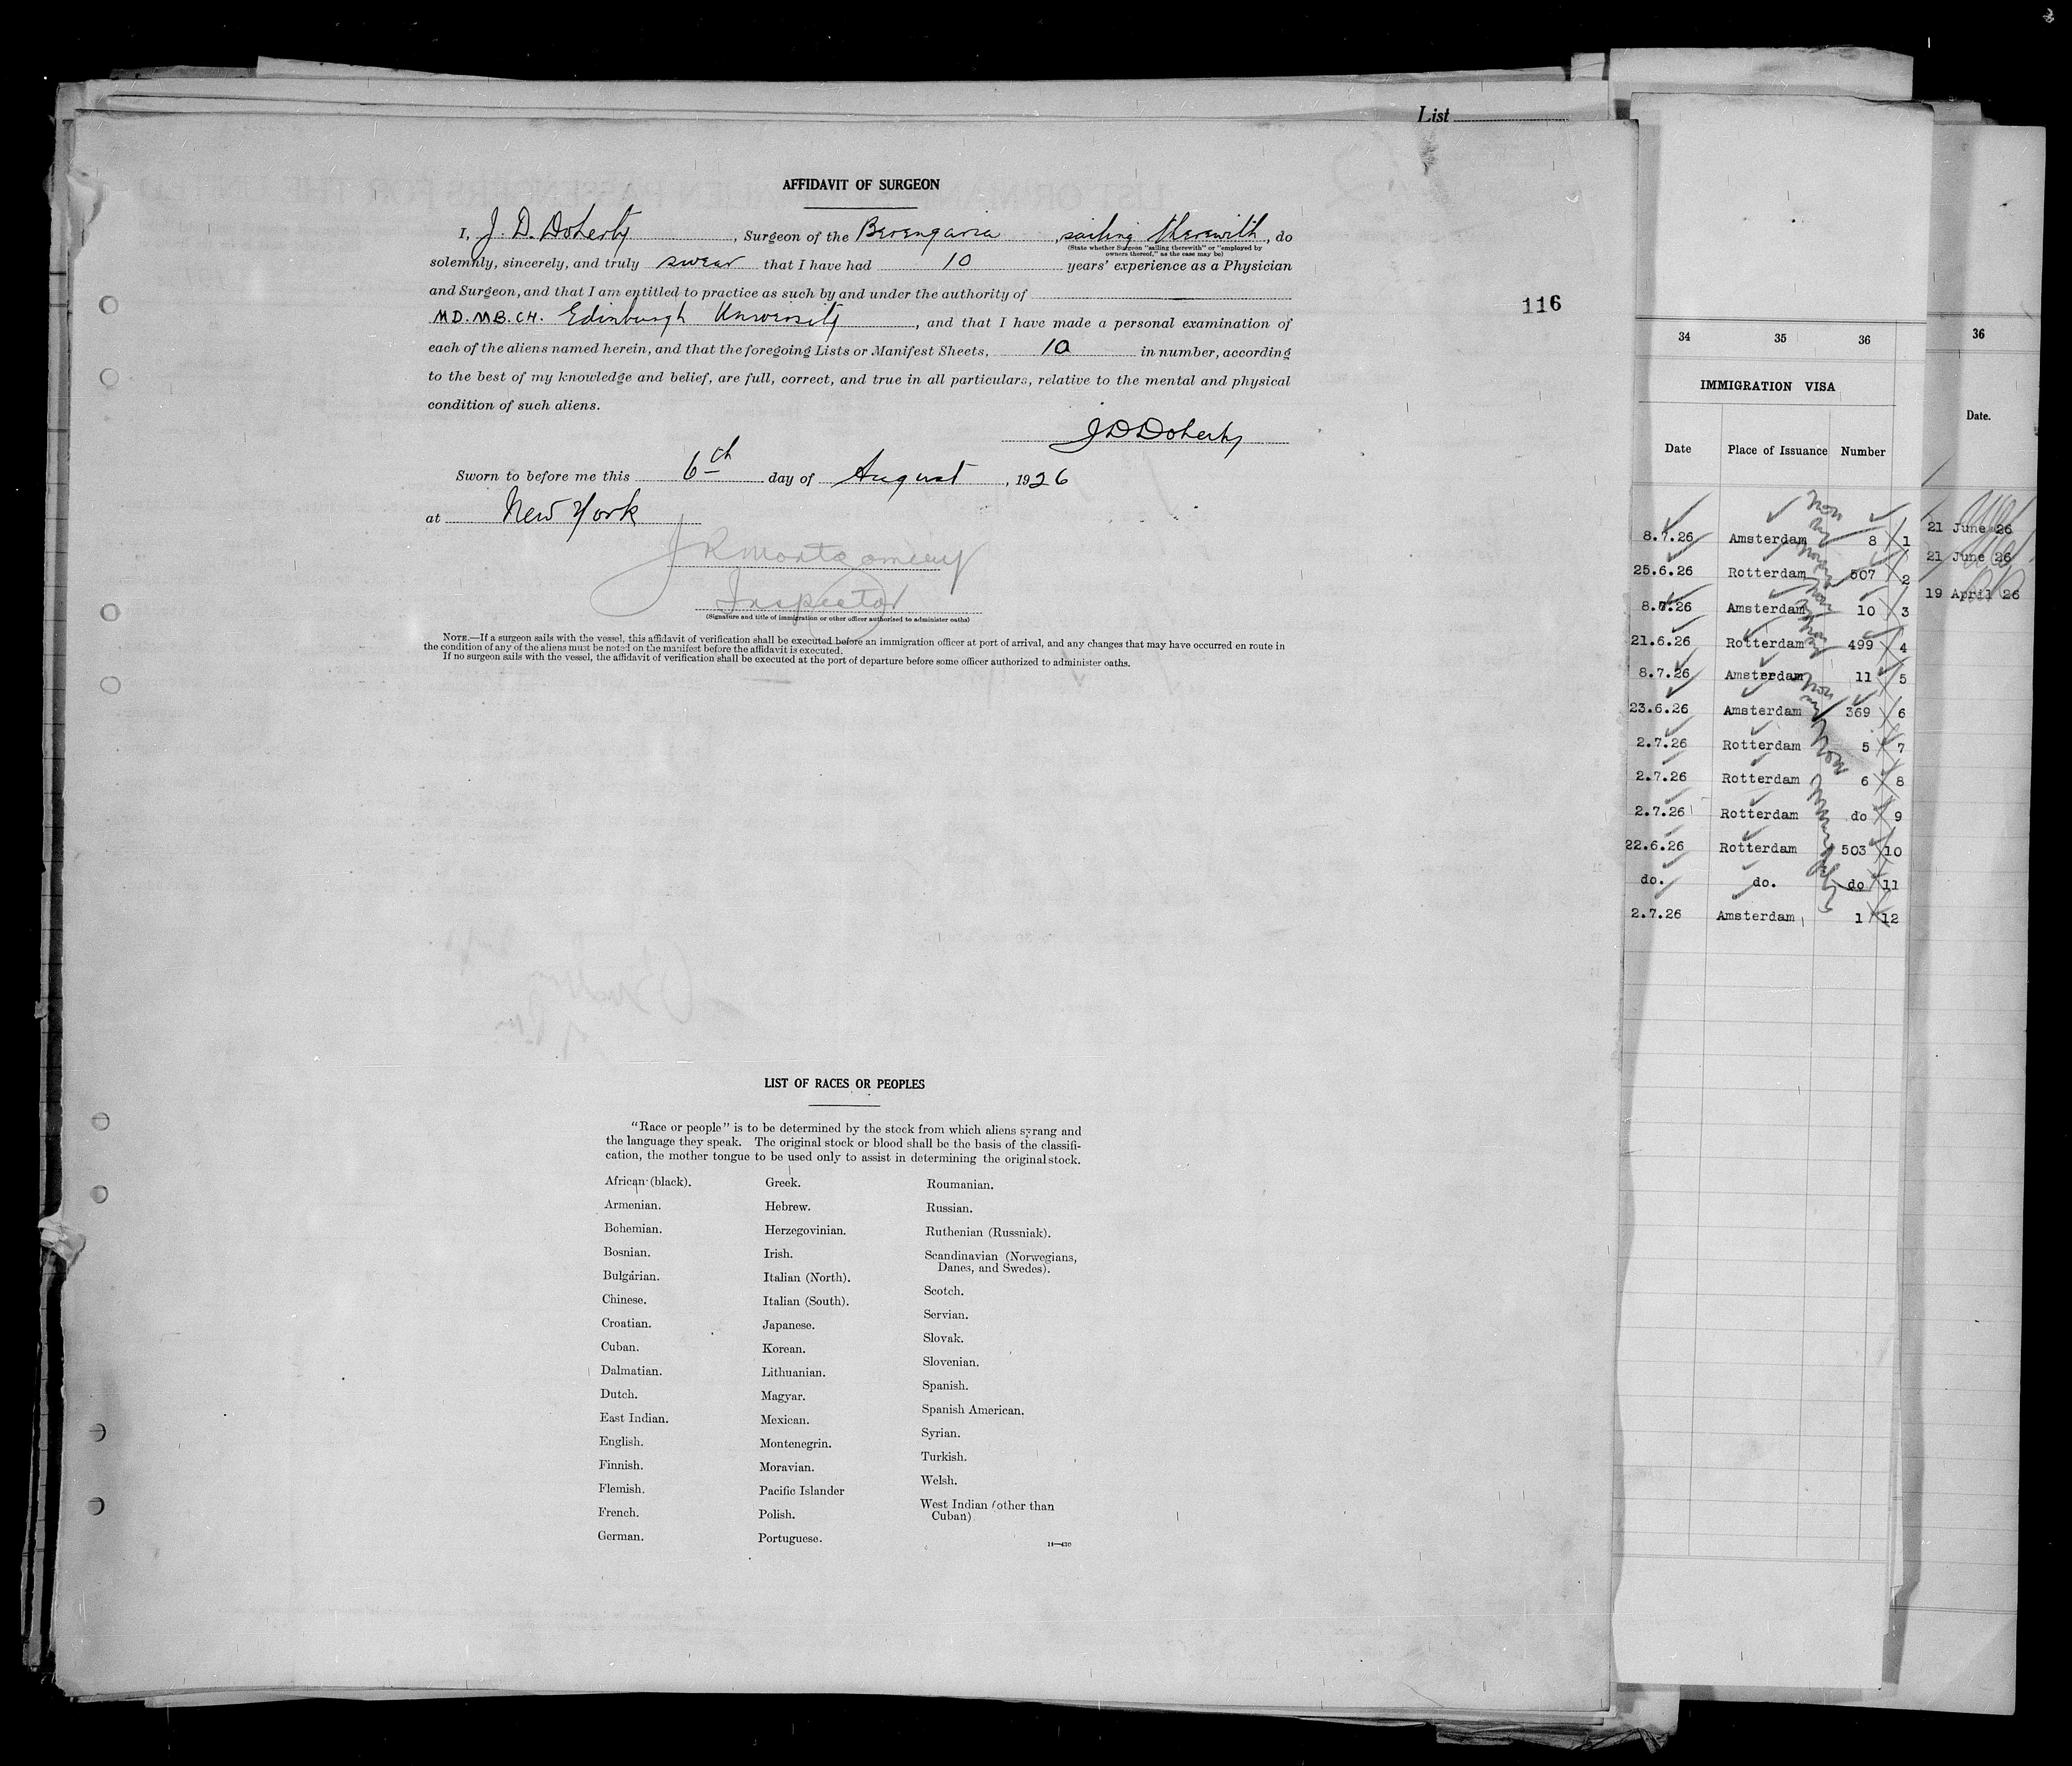 List
AFFIDAVIT OF SURGEON
I, J. D. Doherty, Surgeon of the Berengaria, sailing therewith, do
(State whether Surgeon "sailing therewith" or "employed by
owners thereof," as the case may be)
solemnly, sincerely, and truly swear that I have had 10 years' experience as a Physician
and Surgeon, and that I am entitled to practice as such by and under the authority of
MD. MB. CH. Edinburgh University, and that I have made a personal examination of
116
each of the aliens named herein, and that the foregoing Lists or Manifest Sheets, 10 in number, according
to the best of my knowledge and belief, are full, correct, and true in all particulars, relative to the mental and physical
condition of such aliens.
J D Doherty
Sworn to before me this 6th day of August, 1926
at New York
J R Montgomery
Inspector
(Signature and title of immigration or other officer authorized to administer oaths)
NOTE.—If a surgeon sails with the vessel, this affidavit of verification shall be executed before an immigration officer at port of arrival, and any changes that may have occurred en route in
the condition of any of the aliens must be noted on the manifest before the affidavit is executed.
If no surgeon sails with the vessel, the affidavit of verification shall be executed at the port of departure before some officer authorized to administer oaths.
LIST OF RACES OR PEOPLES
"Race or people" is to be determined by the stock from which aliens sprang and
the language they speak. The original stock or blood shall be the basis of the classifi-
cation, the mother tongue to be used only to assist in determining the original stock.
African (black).
Armenian.
Bohemian.
Bosnian.
Bulgarian.
Chinese.
Croatian.
Cuban.
Dalmatian.
Dutch.
East Indian.
English.
Finnish.
Flemish.
French.
German.
Greek.
Hebrew.
Herzegovinian.
Irish.
Italian (North).
Italian (South).
Japanese.
Korean.
Lithuanian.
Magyar.
Mexican.
Montenegrin.
Moravian.
Pacific Islander
Polish.
Portuguese.
Roumanian.
Russian.
Ruthenian (Russniak).
Scandinavian (Norwegians,
Danes, and Swedes).
Scotch.
Servian.
Slovak.
Slovenian.
Spanish.
Spanish American.
Syrian.
Turkish.
Welsh.
West Indian (other than
Cuban)
34 35 36
IMMIGRATION VISA
Date Place of Issuance Number
8.7.26 Amsterdam 8 1
25.6.26 Rotterdam 507 2
8.7.26 Amsterdam 10 3
21.6.26 Rotterdam 499 4
8.7.26 Amsterdam 11 5
23.6.26 Amsterdam 369 6
2.7.26 Rotterdam 5 7
2.7.26 Rotterdam 6 8
2.7.26 Rotterdam do 9
22.6.26 Rotterdam 503 10
do. do. do 11
2.7.26 Amsterdam 1 12
36
Date.
21 June 26
21 June 26
19 April 26